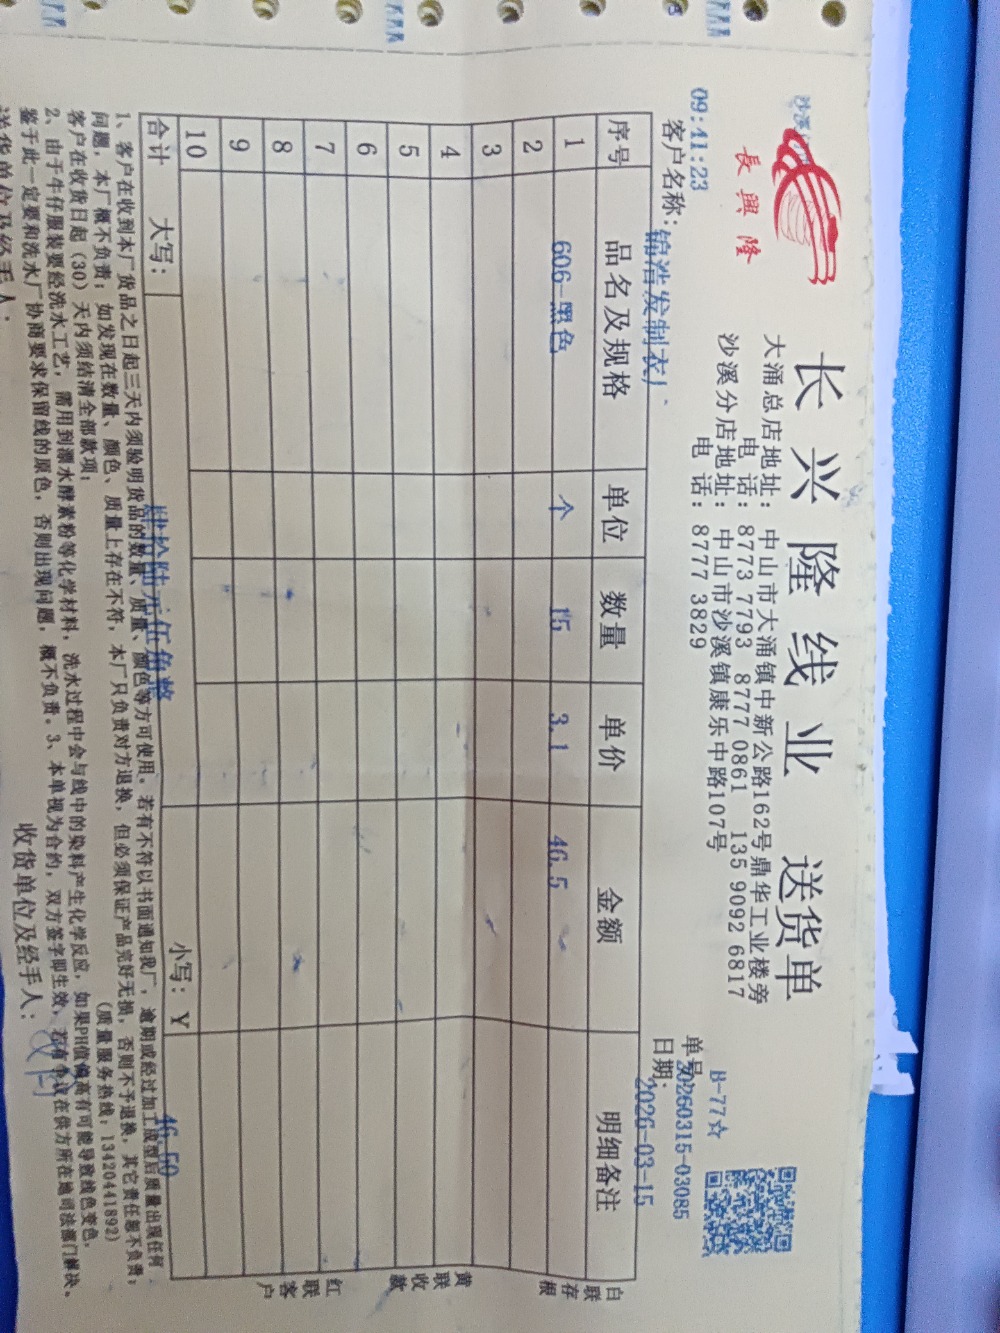 長興隆
长兴隆线业 送货单
大涌总店地址：中山市大涌镇中新公路162号鼎华工业楼旁
电 话：8773 7793 8777 0861 135 9092 6817
沙溪分店地址：中山市沙溪镇康乐中路107号
电 话：8777 3829
B-77☆
单号：20260315-03085
日期：2026-03-15
09:41:23
客户名称：锦浩发制衣厂
序号 品名及规格 单位 数量 单价 金额 明细备注
1 606-黑色 个 15 3.1 46.5
2
3
4
5
6
7
8
9
10
合计 大写：肆拾陆元伍角整 小写：¥ 46.50
白联存根
黄联收款
红联客户
1、客户在收到本厂货品之日起三天内须验明货品的数量、质量、颜色等方可使用。若有不符以书面通知我厂，逾期或经过加工成型后质量出现任何
问题，本厂概不负责；如发现在数量、颜色、质量上存在不符，本厂只负责对方退换，但必须保证产品完好无损，否则不予退换，其它责任恕不负责；
客户在收货日起（30）天内须结清全部款项； （质量服务热线：13420441892）
2、由于牛仔服装要经洗水工艺，需用到漂水酵素粉等化学材料，洗水过程中会与线中的染料产生化学反应，如果PH值偏高有可能导致线色变色。
鉴于此一定要和洗水厂协商要求保留线的原色，否则出现问题，概不负责。3、本单视为合约，双方签字即生效，若有争议在供方所在地司法部门解决。
送货单位及经手人： 收货单位及经手人：